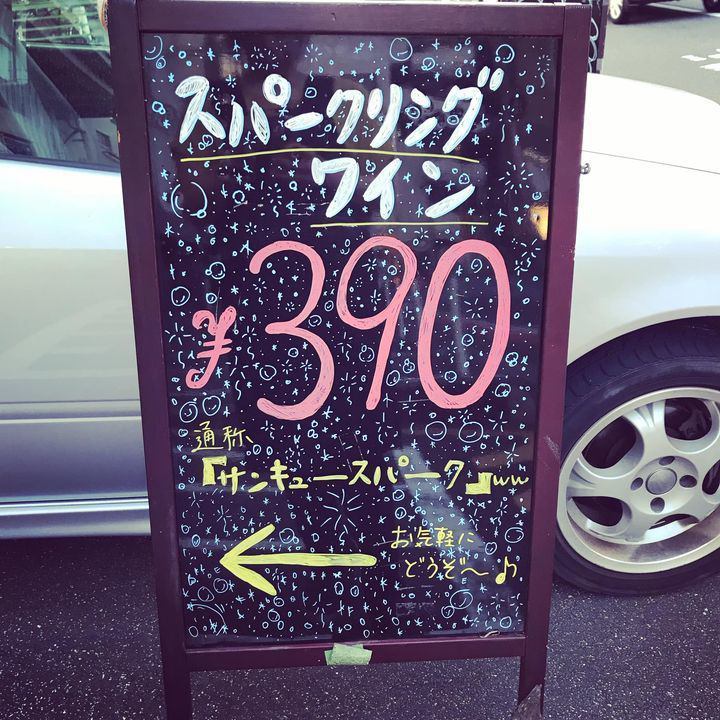 スパークリング
ワイン
¥390
通称、
『サンキュースパーク』ww
お気軽に
どうぞ〜♪